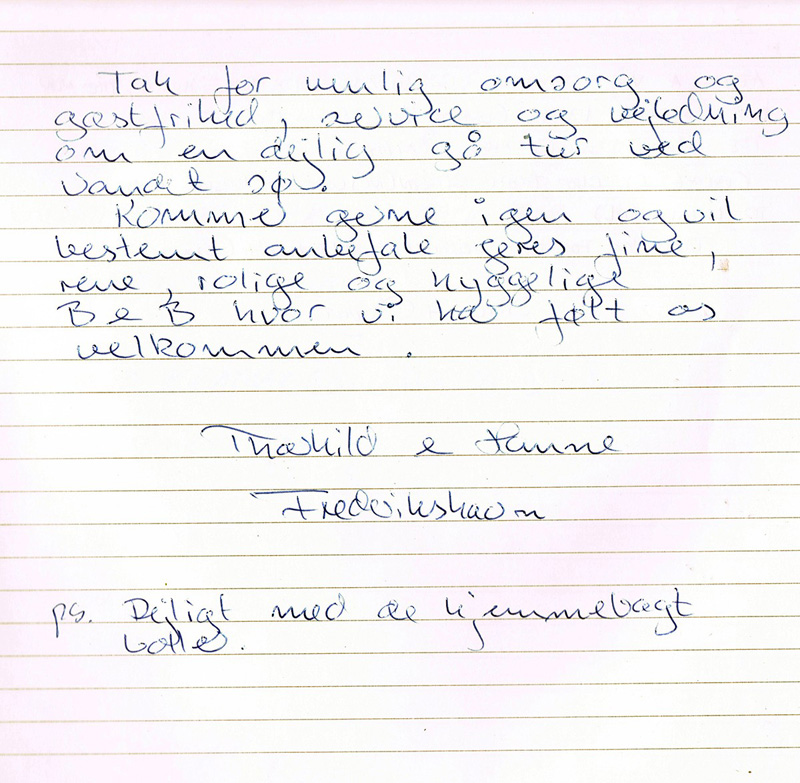 Tak for mulig omsorg og
gæstfrihed, service og vejledning
om en dejlig gå tur ved
vandet sø.
Komme gerne igen og vil
bestemt anbefale jeres fine,
rene, rolige og hyggelige
B & B hvor vi har følt os
velkommen.
Thorkild & Hanne
Frederikshavn
ps. Dejligt med de hjemmebagt
boller.